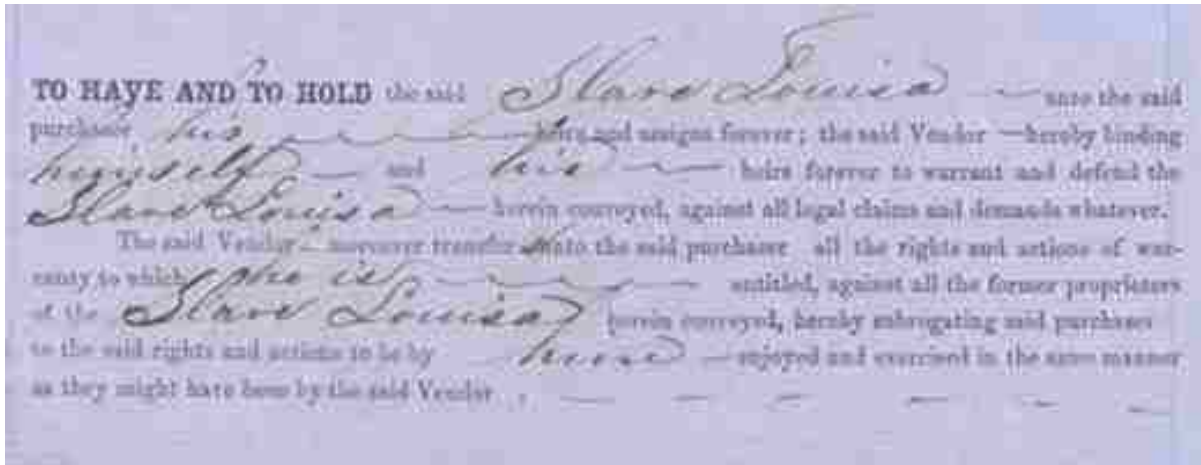 TO HAVE AND TO HOLD the said Slave Louisa — unto the said
purchaser, his — heirs and assigns forever; the said Vendor —hereby binding
himself — and his — heirs forever to warrant and defend the
Slave Louisa — herein conveyed, against all legal claims and demands whatever.
The said Vendor moreover transfers unto the said purchaser all the rights and actions of war-
ranty to which he is — entitled, against all the former proprietors
of the Slave Louisa herein conveyed, hereby subrogating said purchaser
to the said rights and actions to be by him — enjoyed and exercised in the same manner
as they might have been by the said Vendor